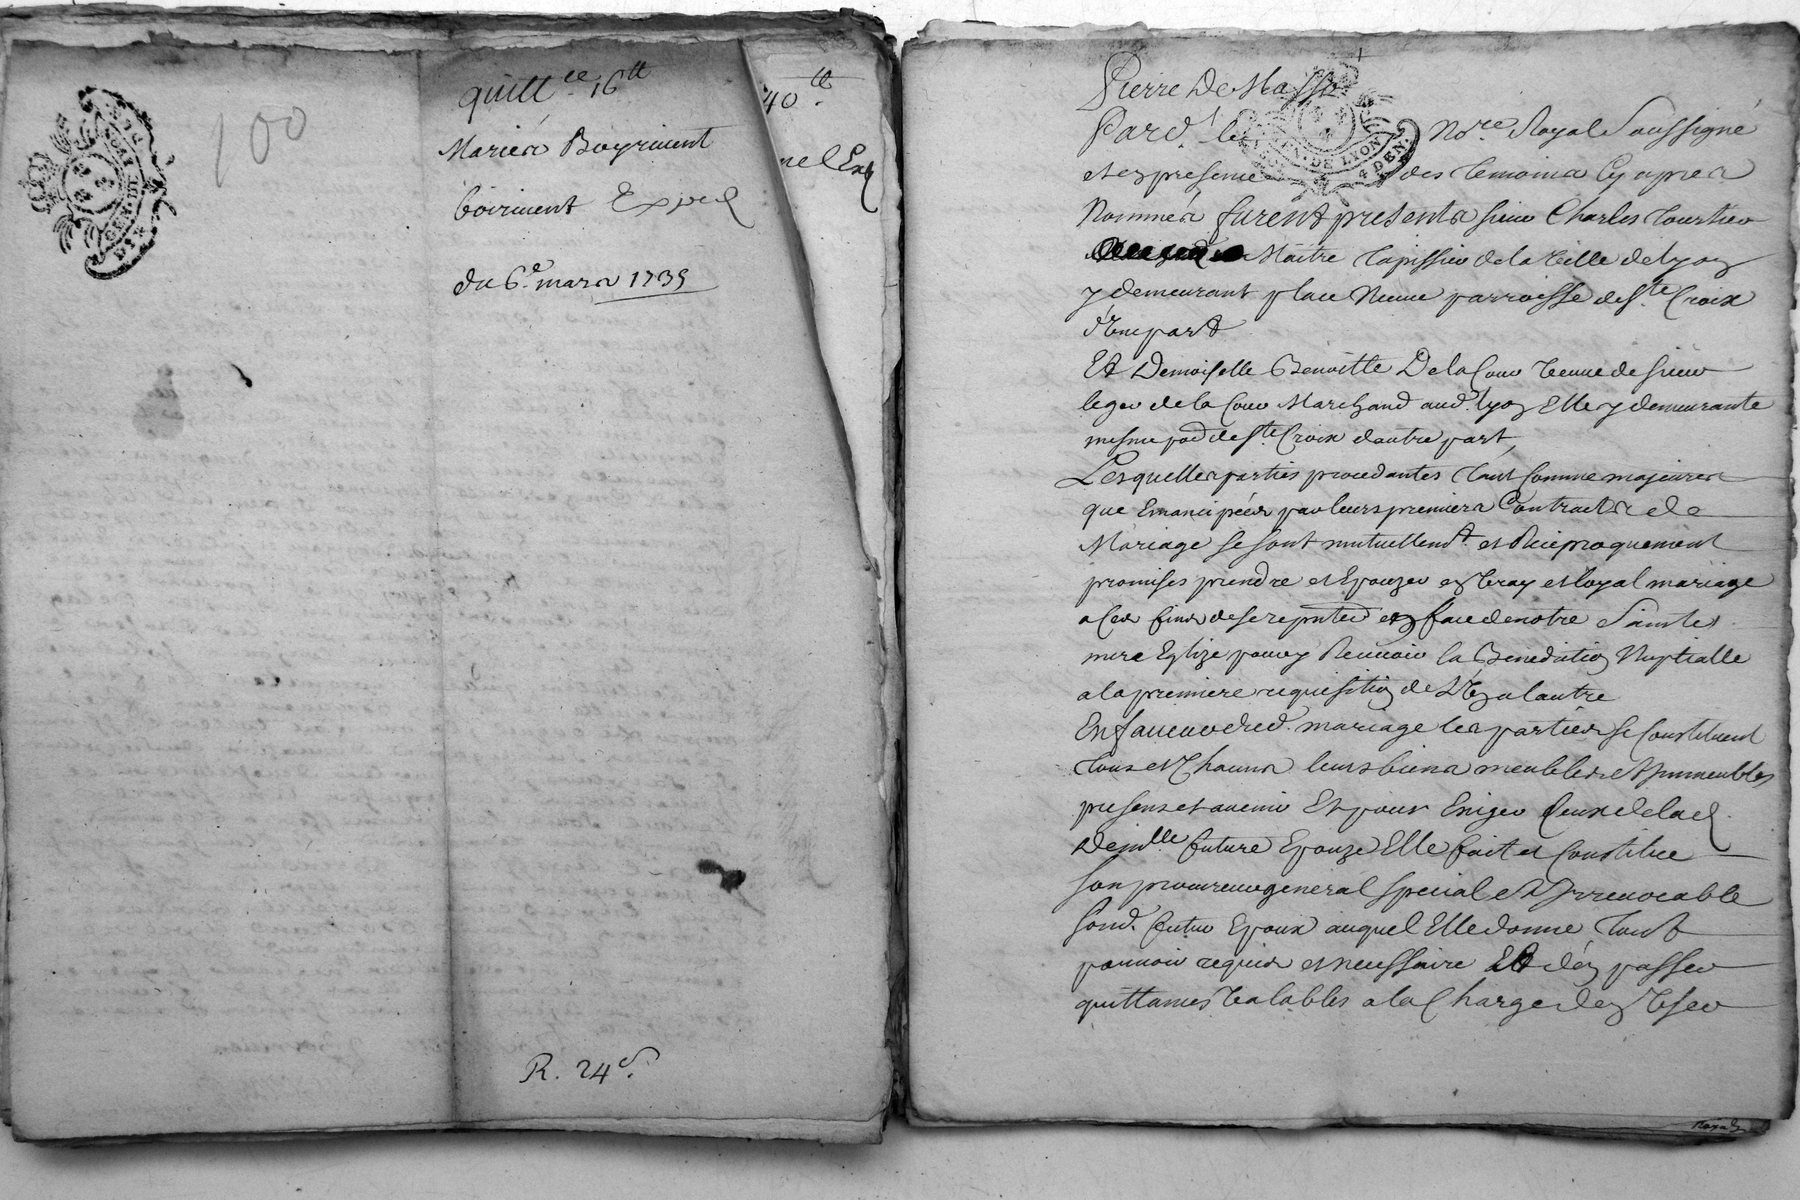 100
quitt.ce 16tt
Mariés Boyriuent
boiriuent Exped
du 6e mars 1735
R. 24s.
40tt
DE LYON
4 DEN.
Pierre De Masso
Pard.t le No.re Royal Soussigné
et en presence des temoins Cy apres
Nommés furent presents sieur Charles Tourtier
Maitre Tapissier de la Ville de Lyon
y demeurant place Neuve parroisse de S.te Croix
d'Une part
Et Demoiselle Benoitte De la Cour Veuve de sieur
leger de la Cour Marchand aud. Lyon Elle y demeurante
mesme par. de S.te Croix d'autre part,
Lesquelles parties procedantes tant Comme majeures
que Emancipées par leurs premiers Contracts de
Mariage se sont mutuellem.t et Reciproquement
promises prendre et Epouzer en Vray et loyal mariage
a Ces fins de se reputer en face de notre Sainte
mere Eglize pour y Recevoir la Benediction Nuptialle
a la premiere requisition de L'Un a l'autre
En faveur dud. mariage les parties se Constituent
tous et Chacuns leurs biens meubles et Immeubles
presens et avenir Et pour Exiger Ceux de lad.
Dem.lle future Epouze Elle fait et Constitue
son procureur general special et Irrevocable
Sond. futur Epoux auquel Elle donne tout
pouvoir requis et necessaire Et d'en passer
quittances Valables a la Charge d'en User